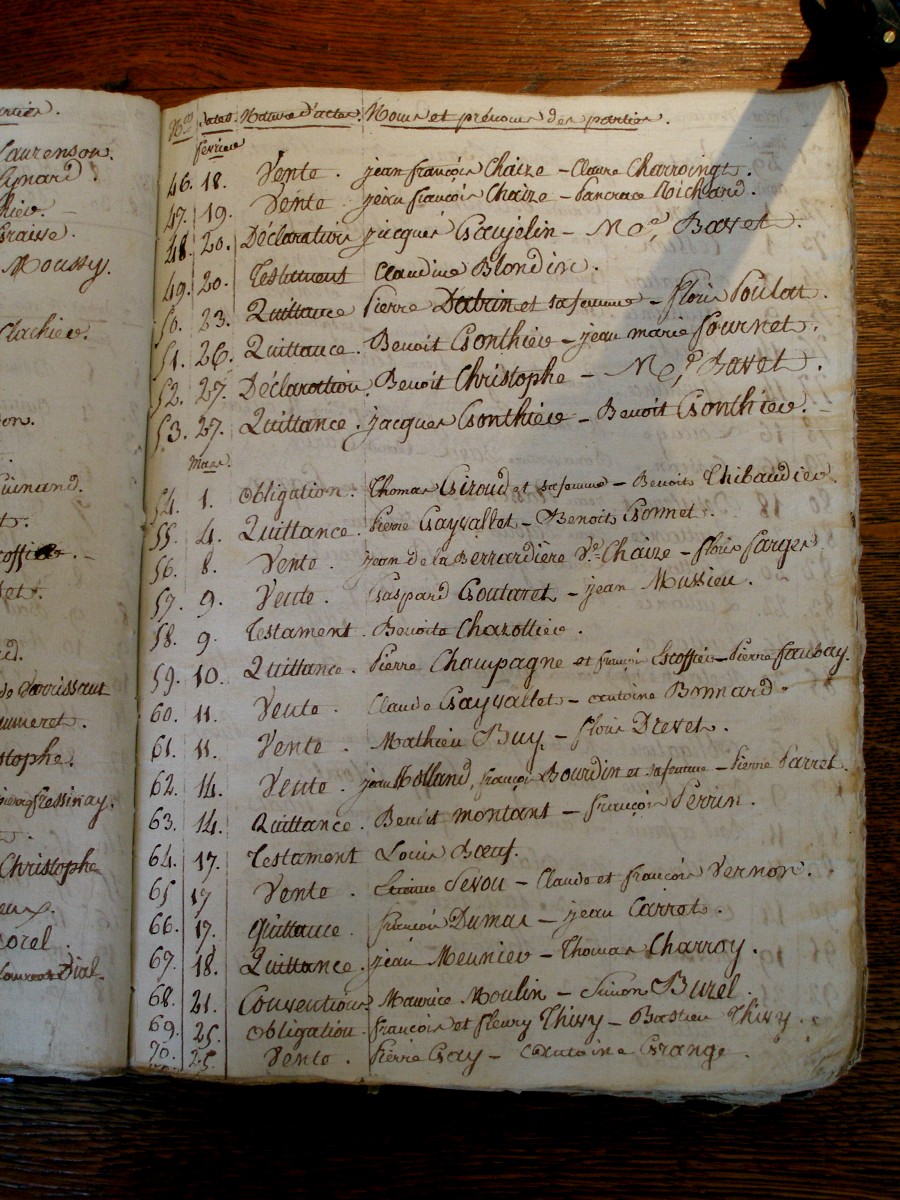 Nos Dates. Nature d'actes. Noms et prénoms des parties.
février
46. 18. Vente. jean françois Chaize - Claude Charroingt.
47. 19. Vente jean françois Chaize - Pancrace Richard.
48. 20. Déclaration jacques Goujelin - Bavet.
49. 20. Testament Claudine Blondin.
50. 23. Quittance Pierre Dabrin et sa femme - floris Poulat.
51. 26. Quittance. Benoit Gonthier - jean marie fournet.
52. 27. Déclaration. Benoit Christophe - Bavet.
53. 27. Quittance. jacques Gonthier - Benoit Gonthier.
Mars.
54. 1. Obligation. Thomas Giroud et sa femme - Benoits Thibaudier.
55. 4. Quittance. Pierre Gayvallet - Benoits Gonnet.
56. 8. Vente. jean de la Berrardière Vve Chaize - floris farges
57. 9. Vente. Gaspard Goutaret - jean Mussieu.
58. 9. Testament. Benoite Charollier.
59. 10. Quittance. Pierre Champagne et françois Escoffier - Pierre faubay.
60. 11. Vente. Claude Gayvallet - antoine Bonnard.
61. 11. Vente. Mathieu Buy. - floris Drevet.
62. 14. Vente. jean Rolland, françois Bourdin et sa femme - Pierre Parret.
63. 14. Quittance. Benoit montant - françois Perrin.
64. 17. Testament Louis Bœuf.
65 17 Vente. Etienne Sevou - Claude et françois Vernon.
66. 17. Quittance. françois Dumas - jean Carrot.
67. 18. Quittance. jean Meunier - Thomas Charroy.
68. 21. Conventions. Maurice Moulin - Simon Burel.
69. 25. Obligation. francois et fleury Thivy - Bastien Thivy.
70. 25. Vente. Pierre Gay - antoine Grange.